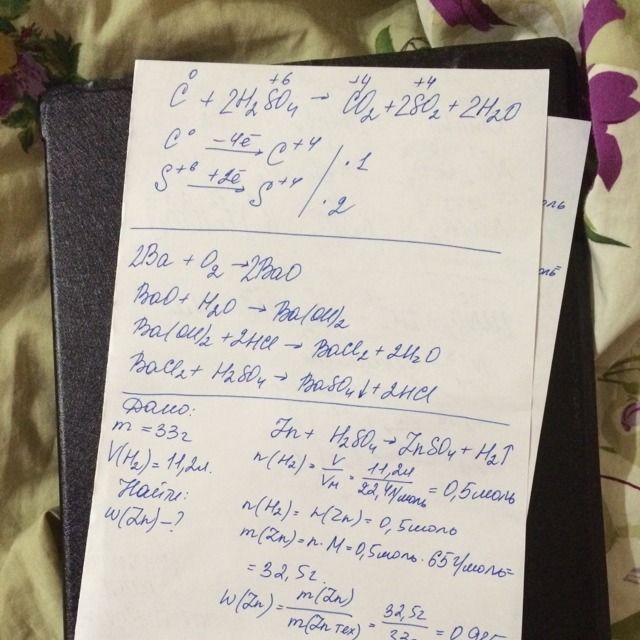 0 +6 +4 +4
C + 2H2SO4 → CO2 + 2SO2 + 2H2O
C0 -4ē → C+4 | ·1
S+6 +2ē → S+4 | ·2
2Ba + O2 → 2BaO
BaO + H2O → Ba(OH)2
Ba(OH)2 + 2HCl → BaCl2 + 2H2O
BaCl2 + H2SO4 → BaSO4↓ + 2HCl
Дано:
m = 33г
V(H2) = 11,2л.
Найти:
w(Zn) – ?
Zn + H2SO4 → ZnSO4 + H2↑
n(H2) = V/VM = 11,2л/22,4л/моль = 0,5моль
n(H2) = n(Zn) = 0,5моль
m(Zn) = n · M = 0,5моль · 65г/моль =
= 32,5г.
w(Zn) = m(Zn)/m(Zn тех) = 32,5г/33г = 0,985
оль
оль